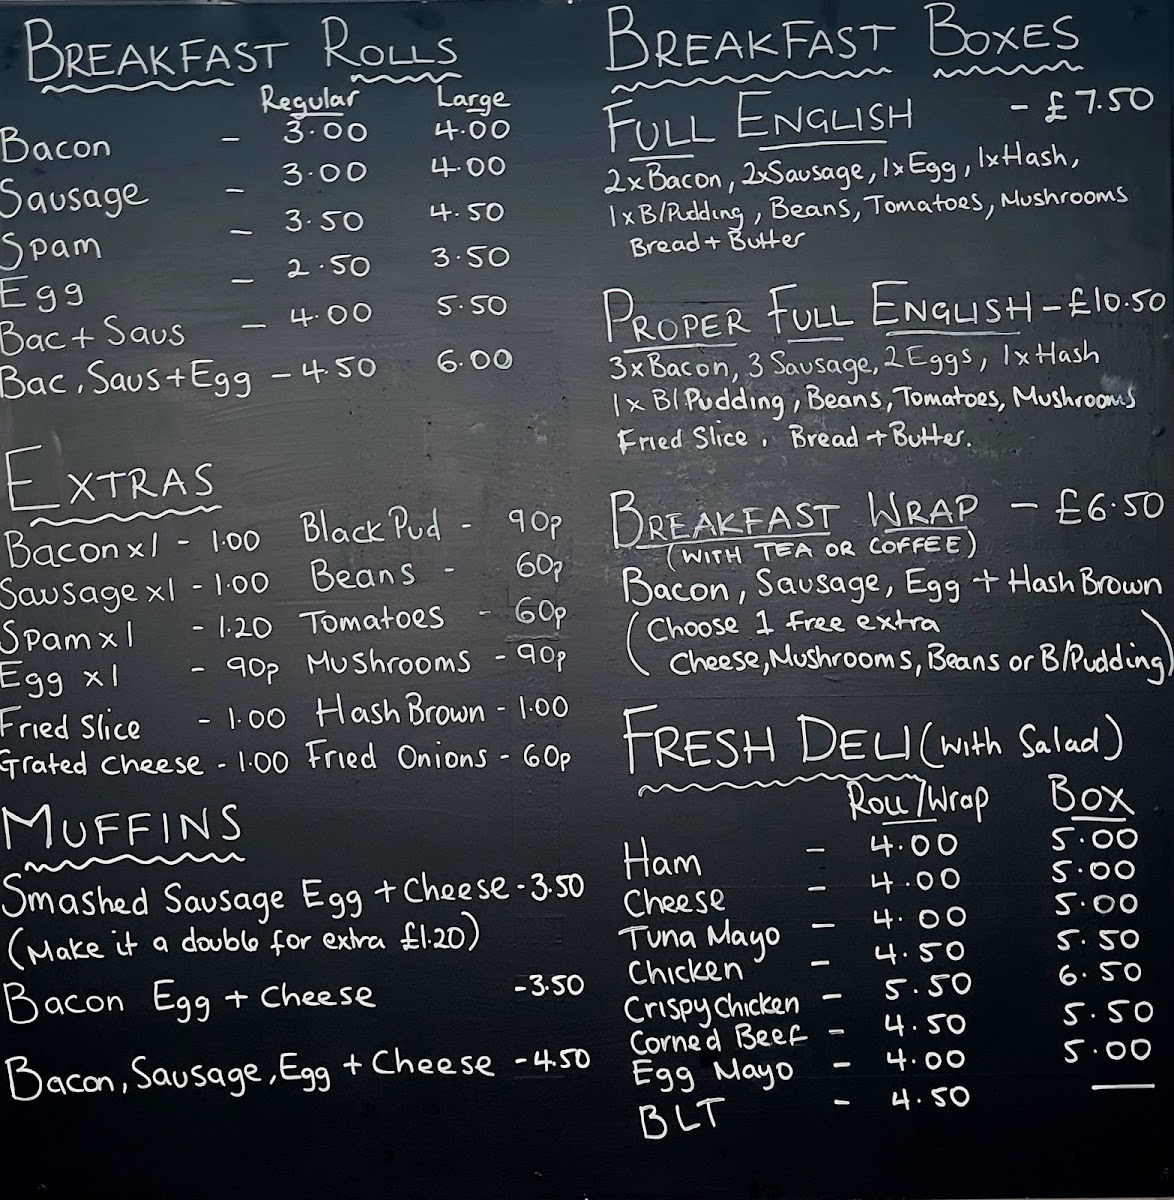 BREAKFAST ROLLS
Regular Large
Bacon - 3.00 4.00
Sausage - 3.00 4.00
Spam - 3.50 4.50
Egg - 2.50 3.50
Bac + Saus - 4.00 5.50
Bac, Saus + Egg - 4.50 6.00
EXTRAS
Bacon x1 - 1.00 Black Pud - 90p
Sausage x1 - 1.00 Beans - 60p
Spam x1 - 1.20 Tomatoes - 60p
Egg x1 - 90p Mushrooms - 90p
Fried Slice - 1.00 Hash Brown - 1.00
Grated Cheese - 1.00 Fried Onions - 60p
MUFFINS
Smashed Sausage Egg + Cheese - 3.50
(Make it a double for extra £1.20)
Bacon Egg + Cheese - 3.50
Bacon, Sausage, Egg + Cheese - 4.50
BREAKFAST BOXES
FULL ENGLISH - £7.50
2xBacon, 2xSausage, 1xEgg, 1xHash,
1x B/Pudding, Beans, Tomatoes, Mushrooms
Bread + Butter
PROPER FULL ENGLISH - £10.50
3xBacon, 3 Sausage, 2 Eggs, 1xHash
1x B/Pudding, Beans, Tomatoes, Mushrooms
Fried Slice, Bread + Butter.
BREAKFAST WRAP - £6.50
(WITH TEA OR COFFEE)
Bacon, Sausage, Egg + Hash Brown
(Choose 1 free extra
Cheese, Mushrooms, Beans or B/Pudding)
FRESH DELI (with Salad)
Roll/Wrap BOX
Ham - 4.00 5.00
Cheese - 4.00 5.00
Tuna Mayo - 4.00 5.00
Chicken - 4.50 5.50
Crispy Chicken - 5.50 6.50
Corned Beef - 4.50 5.50
Egg Mayo - 4.00 5.00
BLT - 4.50 —